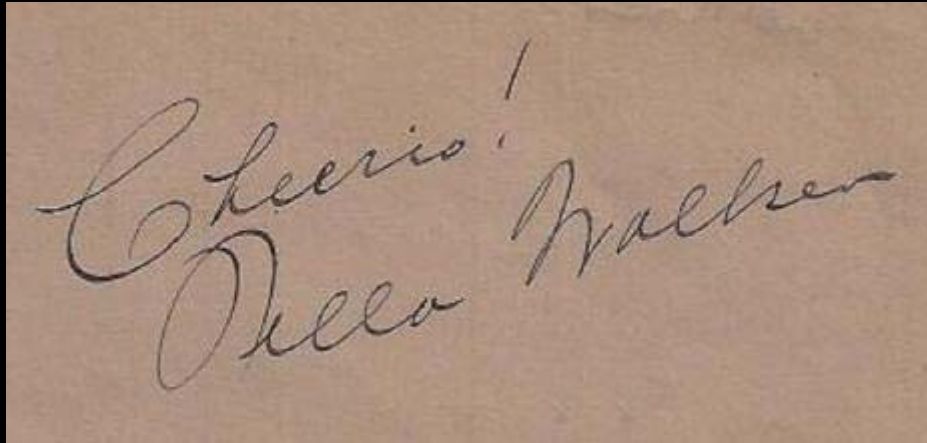 Cheerio!
Nella Walker